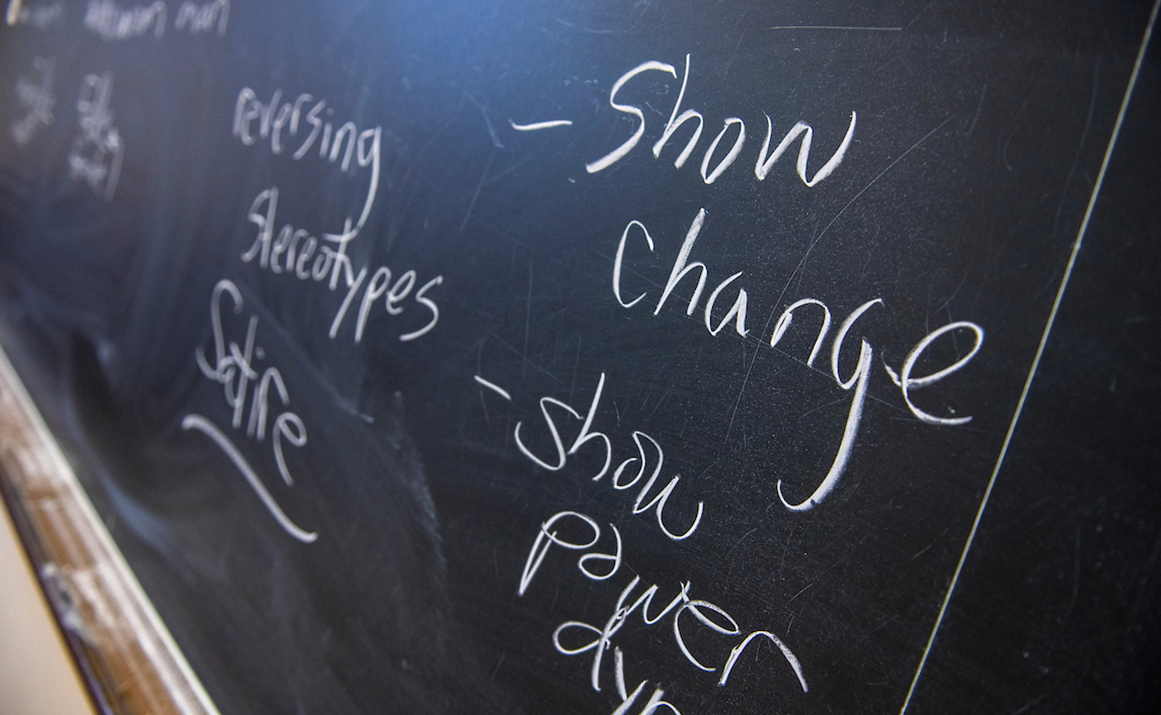 reversing
stereotypes
Satire
- Show
change
- show
power